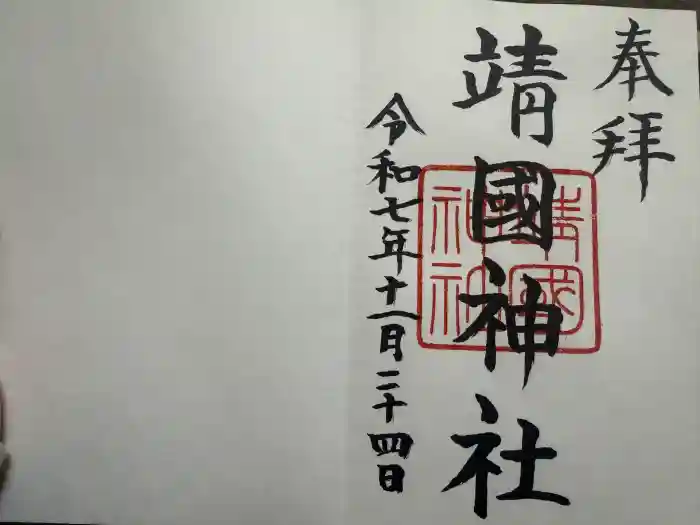 奉拝
靖國神社
靖國
神社
令和七年十一月二十四日